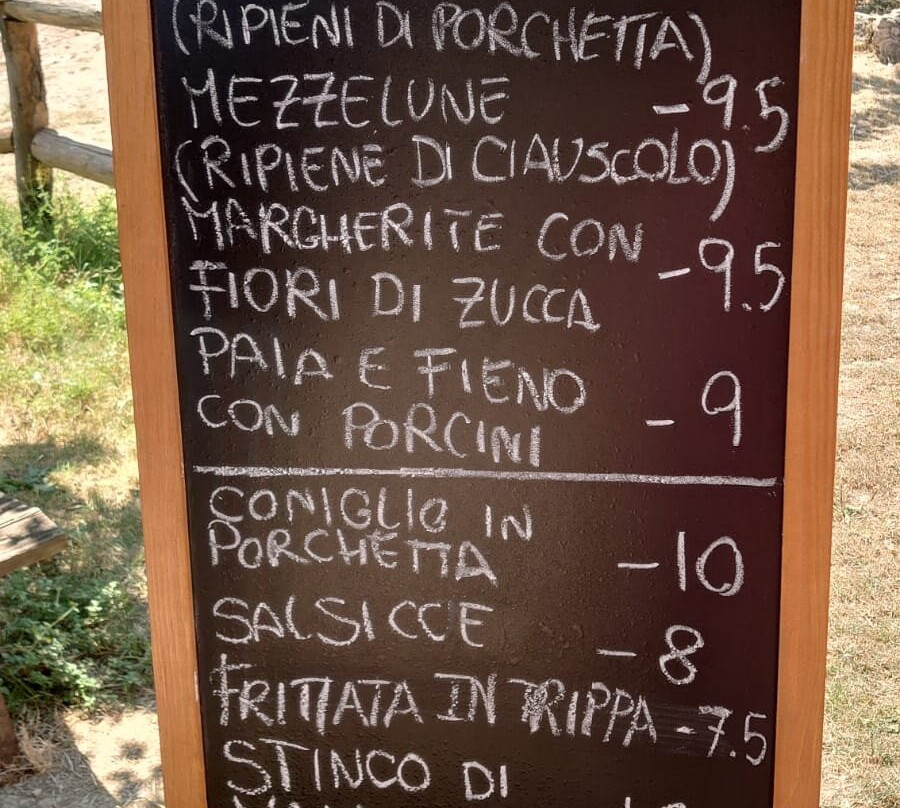 (RIPIENI DI PORCHETTA)
MEZZELUNE - 9.5
(RIPIENE DI CIAUSCOLO)
MARGHERITE CON
FIORI DI ZUCCA - 9.5
PAIA E FIENO
CON PORCINI - 9
CONIGLIO IN
PORCHETTA - 10
SALSICCE - 8
FRITTATA IN TRIPPA - 7.5
STINCO DI